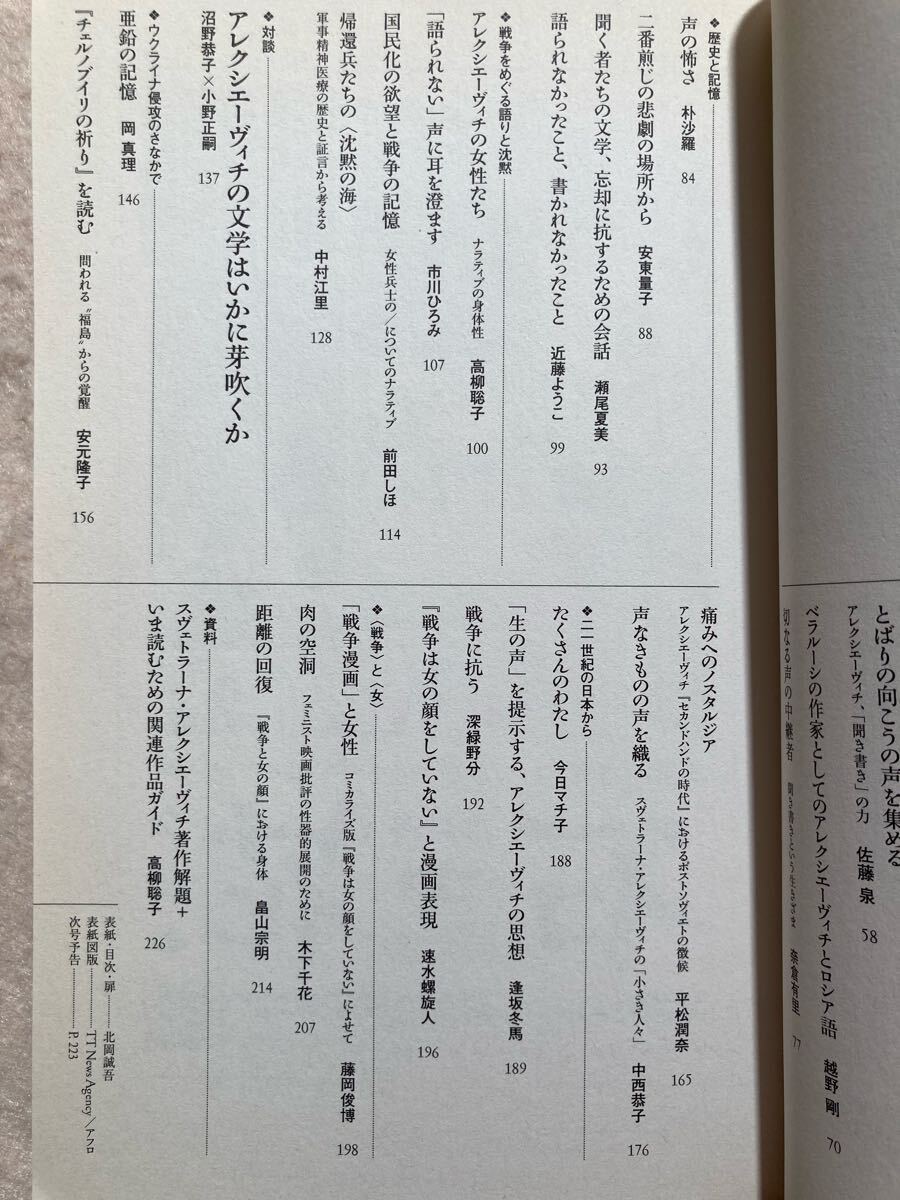 とばりの向こうの声を集める
アレクシエーヴィチ、「聞き書き」の力　佐藤 泉　58
ベラルーシの作家としてのアレクシエーヴィチとロシア語　越野 剛　70
切なる声の中継者　聞き書きという生きざま　奈倉有里　77
❖歴史と記憶
声の怖さ　朴沙羅　84
二番煎じの悲劇の場所から　安東量子　88
聞く者たちの文学、忘却に抗するための会話　瀬尾夏美　93
語られなかったこと、書かれなかったこと　近藤ようこ　99
❖戦争をめぐる語りと沈黙
アレクシエーヴィチの女性たち　ナラティブの身体性　高柳聡子　100
「語られない」声に耳を澄ます　市川ひろみ　107
国民化の欲望と戦争の記憶　女性兵士の／についてのナラティブ　前田しほ　114
帰還兵たちの〈沈黙の海〉
軍事精神医療の歴史と証言から考える　中村江里　128
❖対談
アレクシエーヴィチの文学はいかに芽吹くか
沼野恭子×小野正嗣　137
❖ウクライナ侵攻のさなかで
亜鉛の記憶　岡 真理　146
『チェルノブイリの祈り』を読む　問われる〝福島〟からの覚醒　安元隆子　156
痛みへのノスタルジア
アレクシエーヴィチ『セカンドハンドの時代』におけるポストソヴィエトの徴候　平松潤奈　165
声なきものの声を織る　スヴェトラーナ・アレクシエーヴィチの「小さき人々」　中西恭子　176
❖二一世紀の日本から
たくさんのわたし　今日マチ子　188
「生の声」を提示する、アレクシエーヴィチの思想　逢坂冬馬　189
戦争に抗う　深緑野分　192
『戦争は女の顔をしていない』と漫画表現　速水螺旋人　196
❖〈戦争〉と〈女〉
「戦争漫画」と女性　コミカライズ版『戦争は女の顔をしていない』によせて　藤岡俊博　198
肉の空洞　フェミニスト映画批評の性器的展開のために　木下千花　207
距離の回復　『戦争と女の顔』における身体　畠山宗明　214
❖資料
スヴェトラーナ・アレクシエーヴィチ著作解題＋
いま読むための関連作品ガイド　高柳聡子　226
表紙・目次・扉………北岡誠吾
表紙図版………TT News Agency／アフロ
次号予告………P. 223